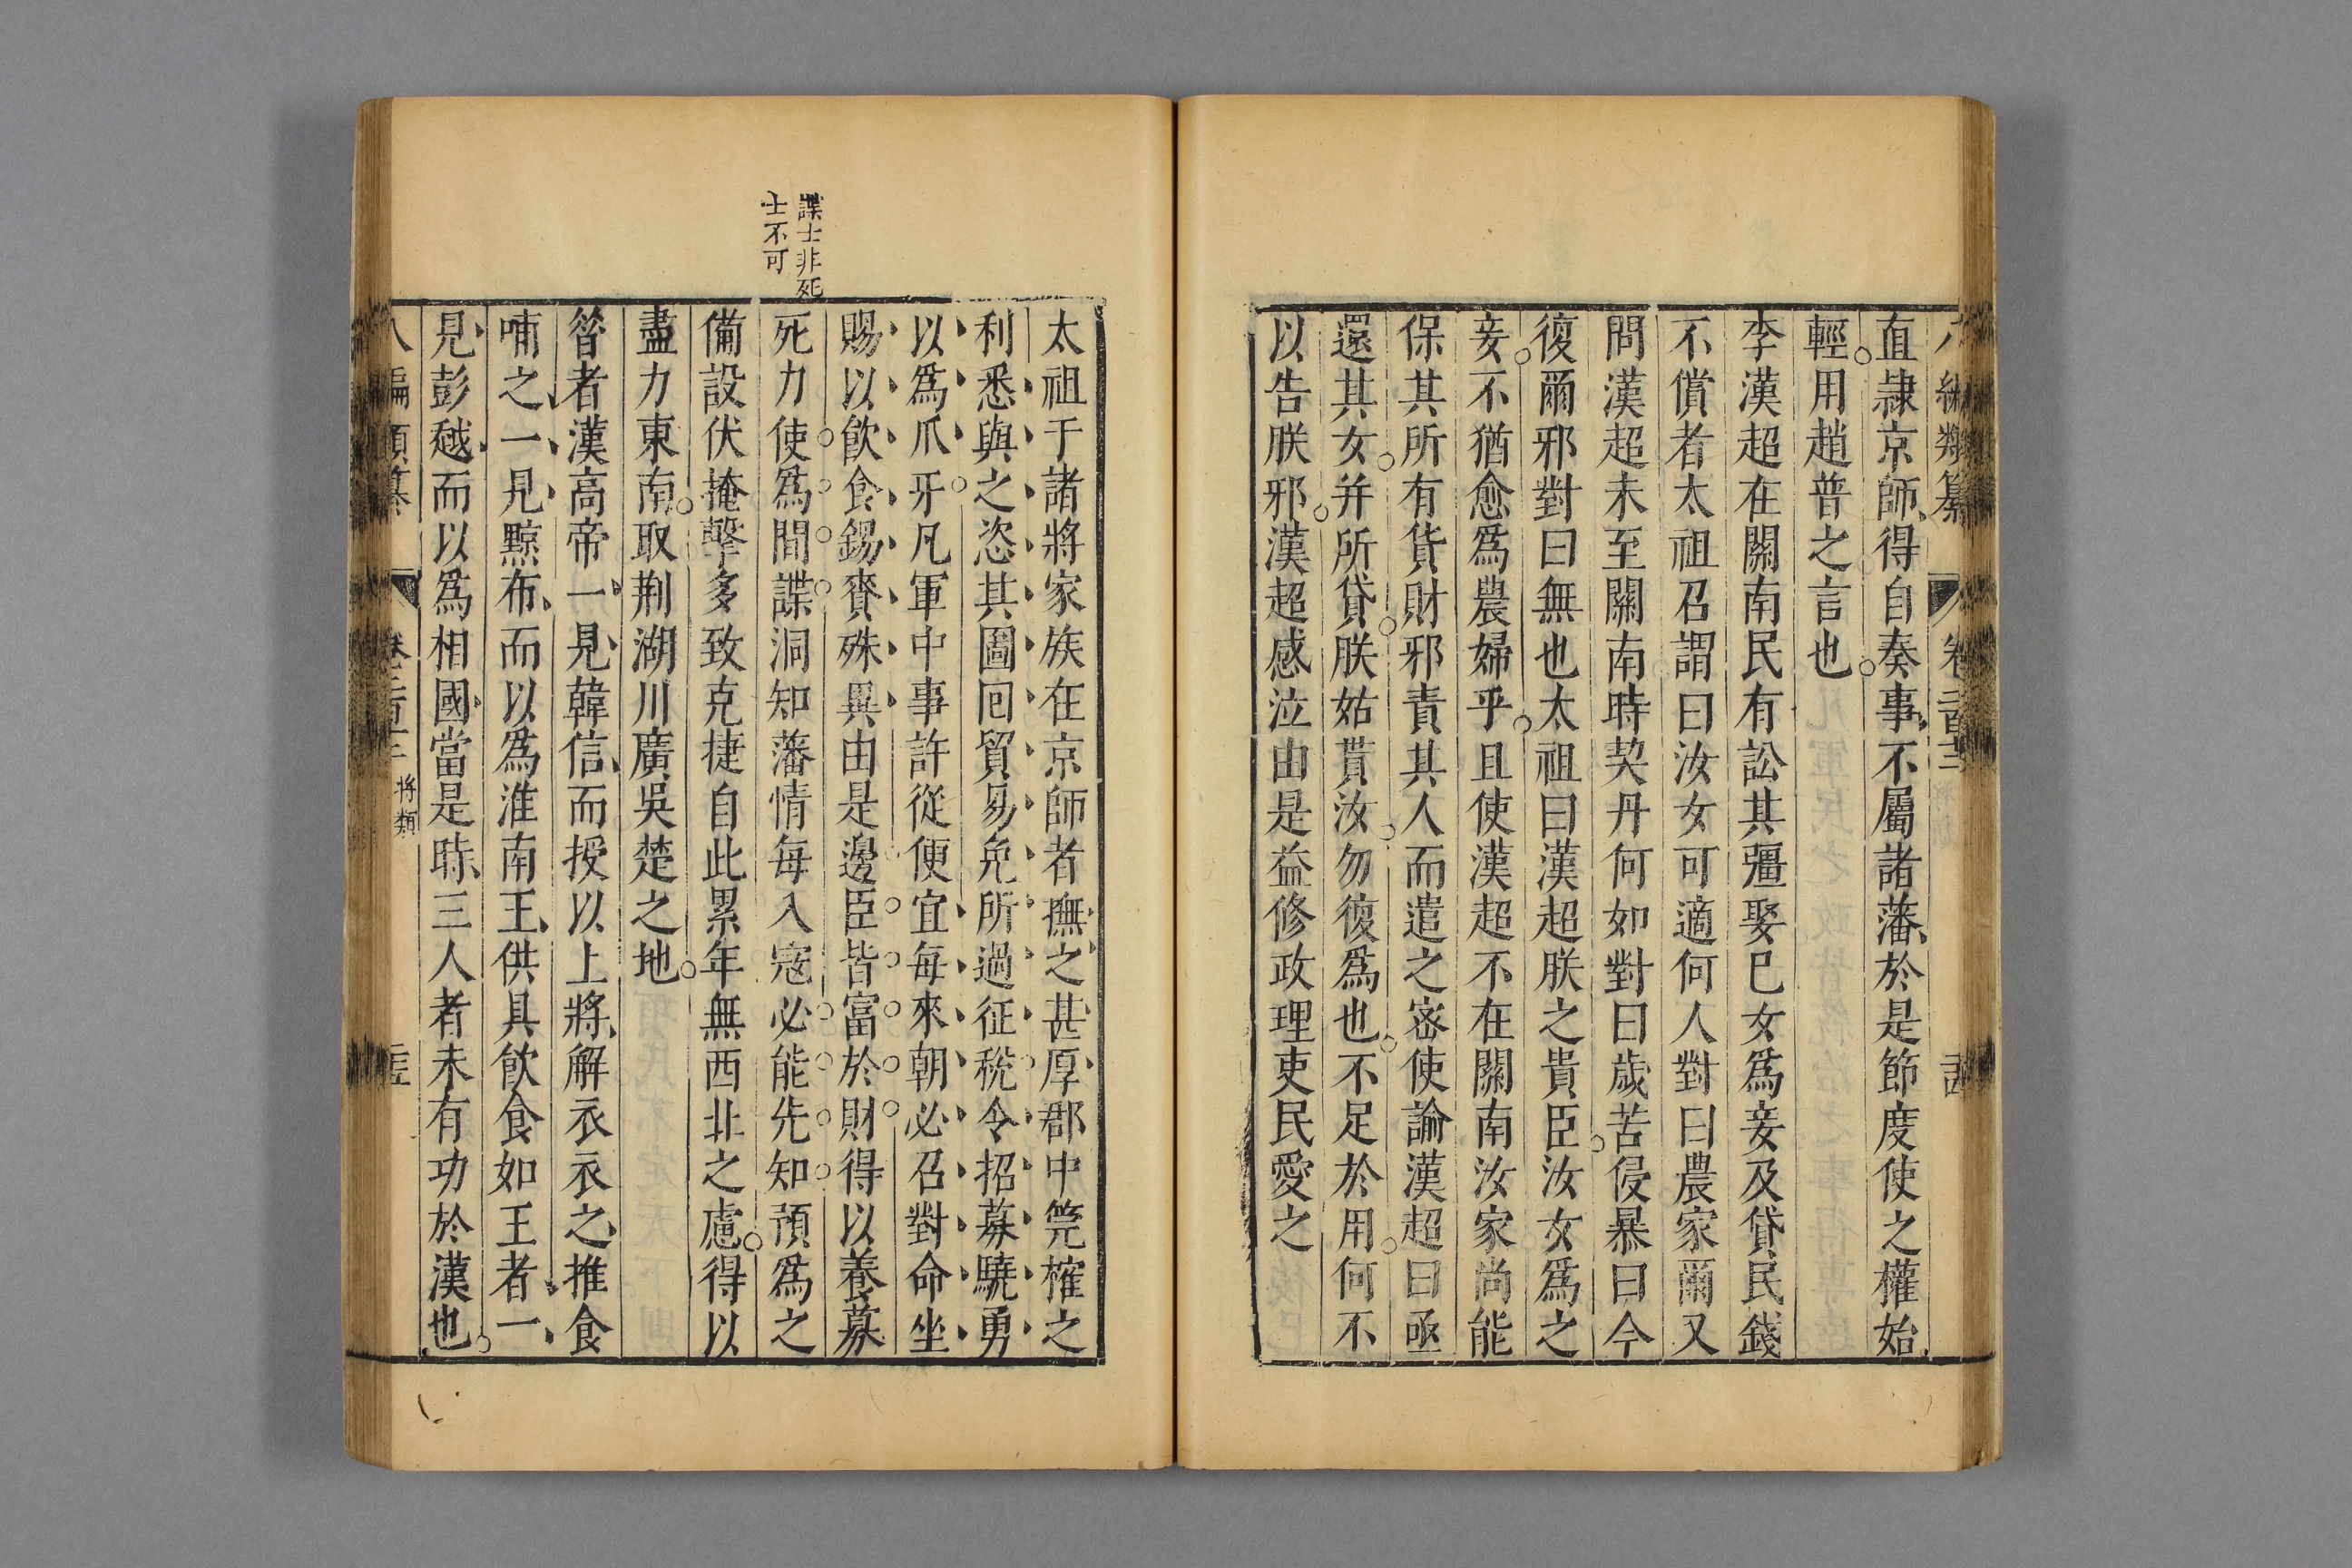 八編類纂 卷二百十三 二十四
直隷京師得自奏事不屬諸藩於是節度使之權始
輕用趙普之言也
李漢超在關南民有訟其彊娶已女爲妾及貸民錢
不償者太祖召謂曰汝女可適何人對曰農家爾又
問漢超未至關南時契丹何如對曰歲苦侵暴曰今
復爾邪對曰無也太祖曰漢超朕之貴臣汝女爲之
妾不猶愈爲農婦乎且使漢超不在關南汝家尚能
保其所有貨財邪責其人而遣之密使諭漢超曰亟
還其女并所貸朕姑貰汝勿復爲也不足於用何不
以告朕邪漢超感泣由是益修政理吏民愛之
太祖于諸將家族在京師者撫之甚厚郡中筦榷之
利悉與之恣其圖回貿易免所過征稅令招募驍勇
以爲爪牙凡軍中事許從便宜每來朝必召對命坐
賜以飲食錫賚殊異由是邊臣皆富於財得以養募
諜士非死
士不可
死力使爲間諜洞知藩情每入寇必能先知預爲之
備設伏掩擊多致克捷自此累年無西北之慮得以
盡力東南取荆湖川廣吳楚之地
昝者漢高帝一見韓信而授以上將解衣衣之推食
哺之一見黥布而以爲淮南王供具飲食如王者一
見彭越而以爲相國當是時三人者未有功於漢也
八編類纂 卷二百十三 將類 二十五